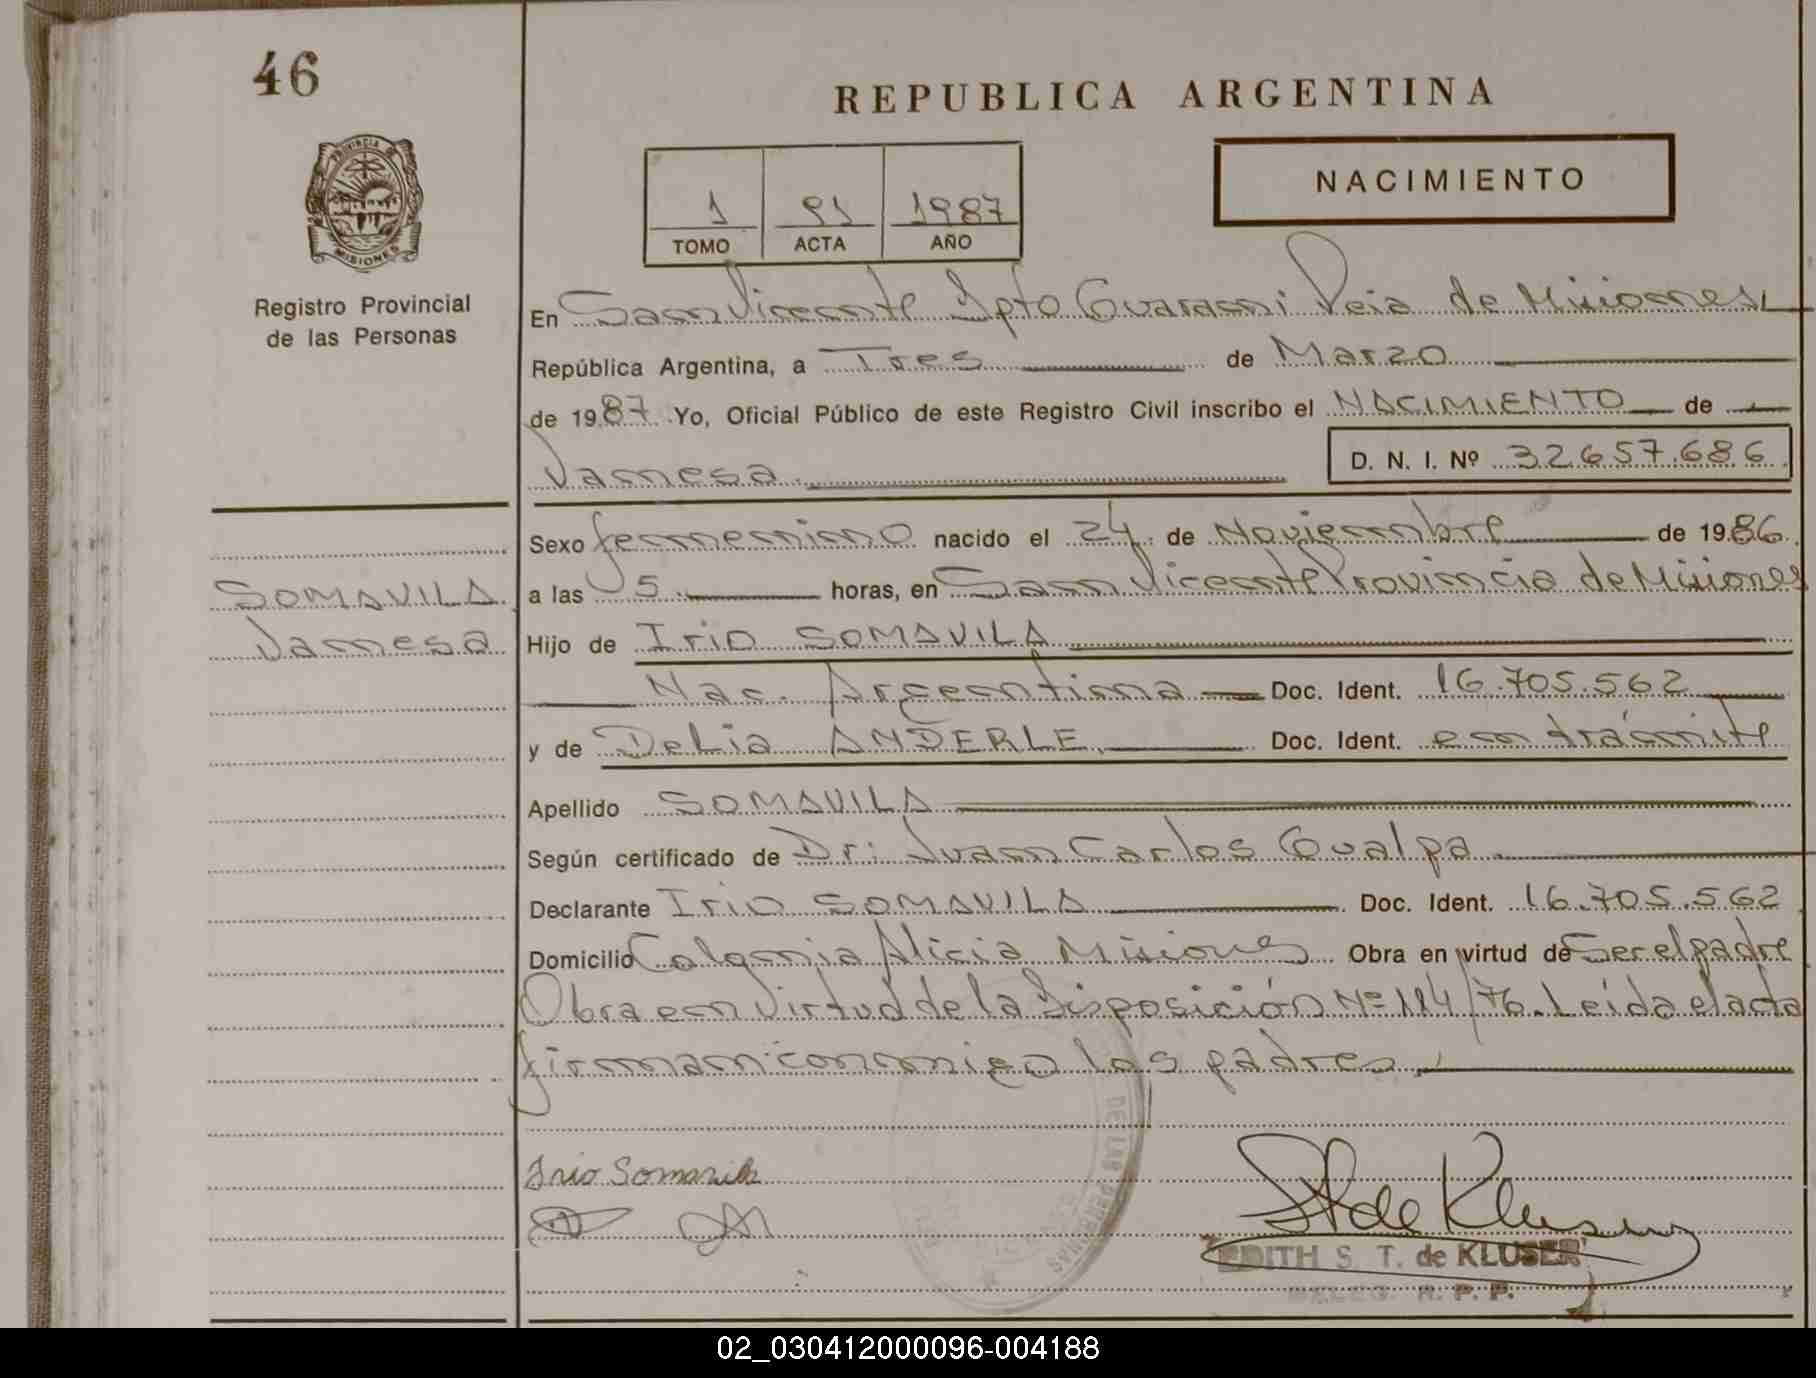 46
REPUBLICA ARGENTINA
NACIMIENTO
PROVINCIA DE
MISIONES
1 91 1987
TOMO ACTA AÑO
Registro Provincial
de las Personas
En San Vicente Dpto Guarani Pcia de Misiones
República Argentina, a Tres de Marzo
de 1987 Yo, Oficial Público de este Registro Civil inscribo el NACIMIENTO de
Vanesa D. N. I. Nº 32.657.686
Sexo femenino nacido el 24 de Noviembre de 1986
SOMAVILA
a las 5 horas, en San Vicente Provincia de Misiones
Vanesa
Hijo de Irio SOMAVILA
Nac. Argentina Doc. Ident. 16.705.562
y de Delia ANDERLE Doc. Ident. en trámite
Apellido SOMAVILA
Según certificado de Dr: Juan Carlos Gualpa
Declarante Irio SOMAVILA Doc. Ident. 16.705.562
Domicilio Colonia Alicia Misiones Obra en virtud de Ser el padre
Obra en Virtud de la Disposición Nº 114/76. Leída el acta
firman conmigo los padres.
DE LAS PERSONAS
Irio Somavila
EDITH S. T. de KLUSER
DELEG. R. P. P.
02_030412000096-004188